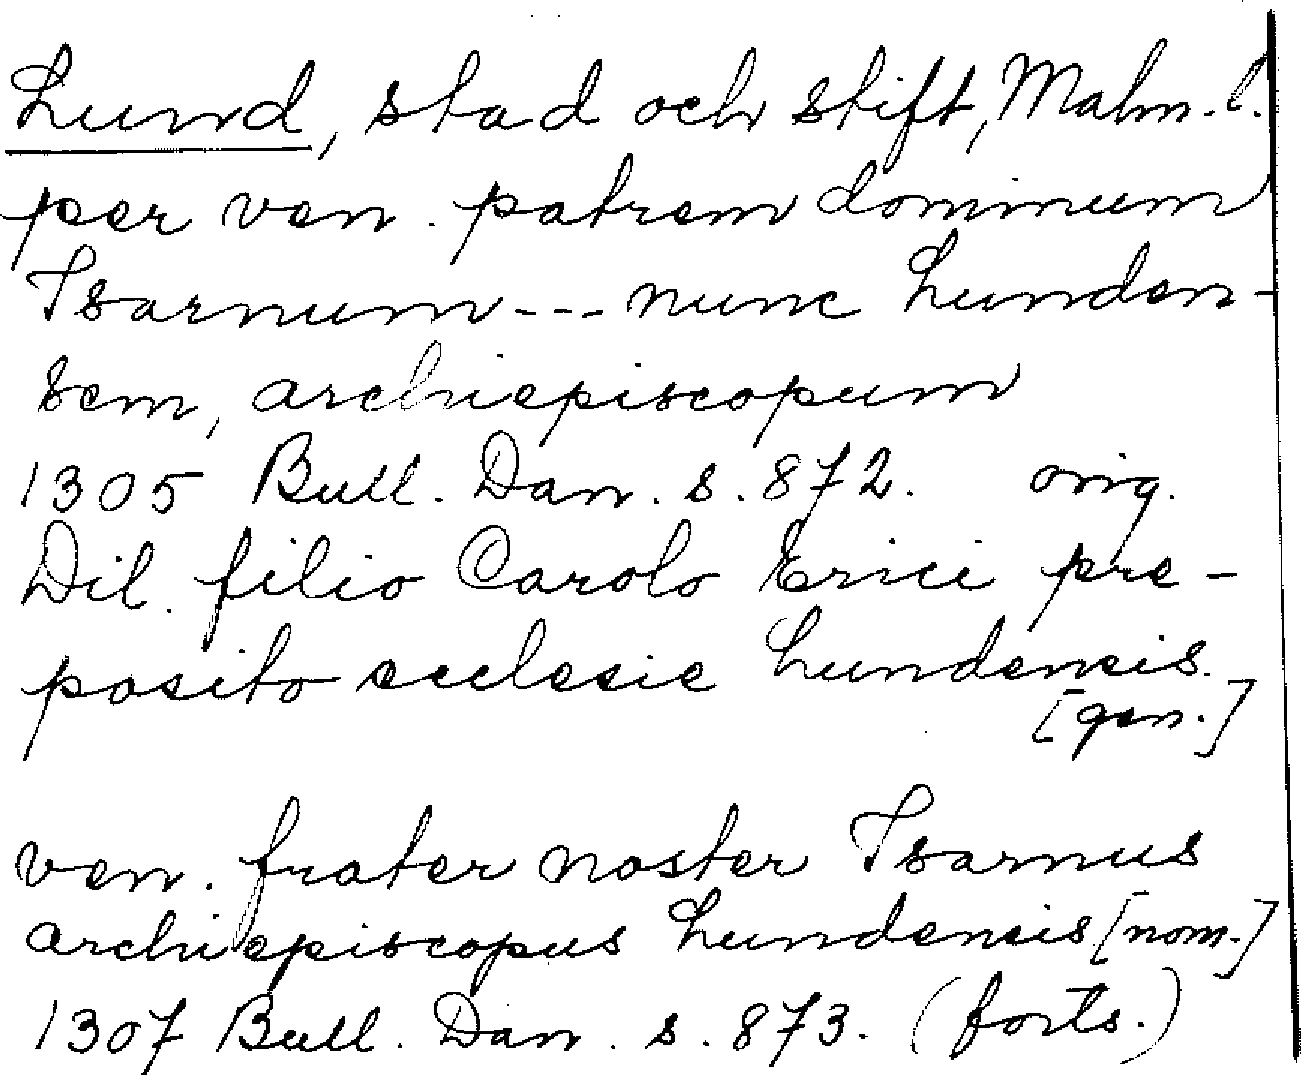 Lund, stad och stift, Malm. l.
per ven. patrem dominum
Isarnum --- nunc Lunden-
sem, archiepiscopum
1305 Bull. Dan. s. 872. orig.
Dil. filio Carolo Erici pre-
posito ecclesie Lundensis.
[gen.]
ven. frater noster Isarnus
archiepiscopus Lundensis [nom.]
1307 Bull. Dan. s. 873. (forts.)